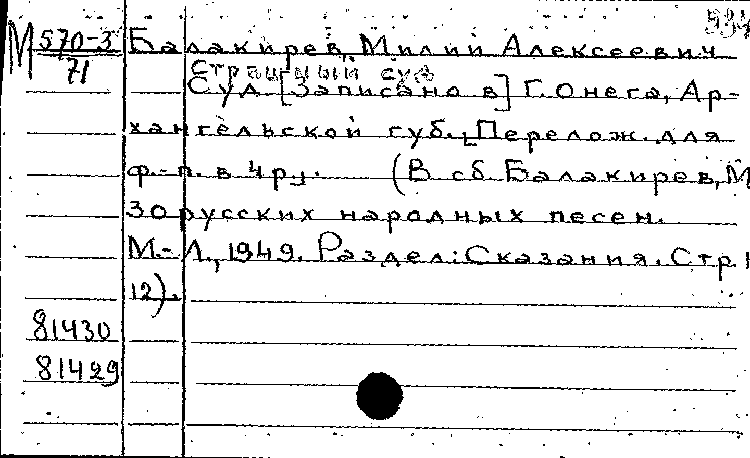 М 570-3
71
Балакирев, Милий Алексеевич
Страшный суд
Суд. [Записано в] Г. Онега, Ар-
хангельской губ., [Перелож. для
ф.-п. в 4 р.]. (В сб. Балакирев, М
30 русских народных песен.
М.-Л., 1949. Раздел: Сказания. Стр.
12).
81430
81429